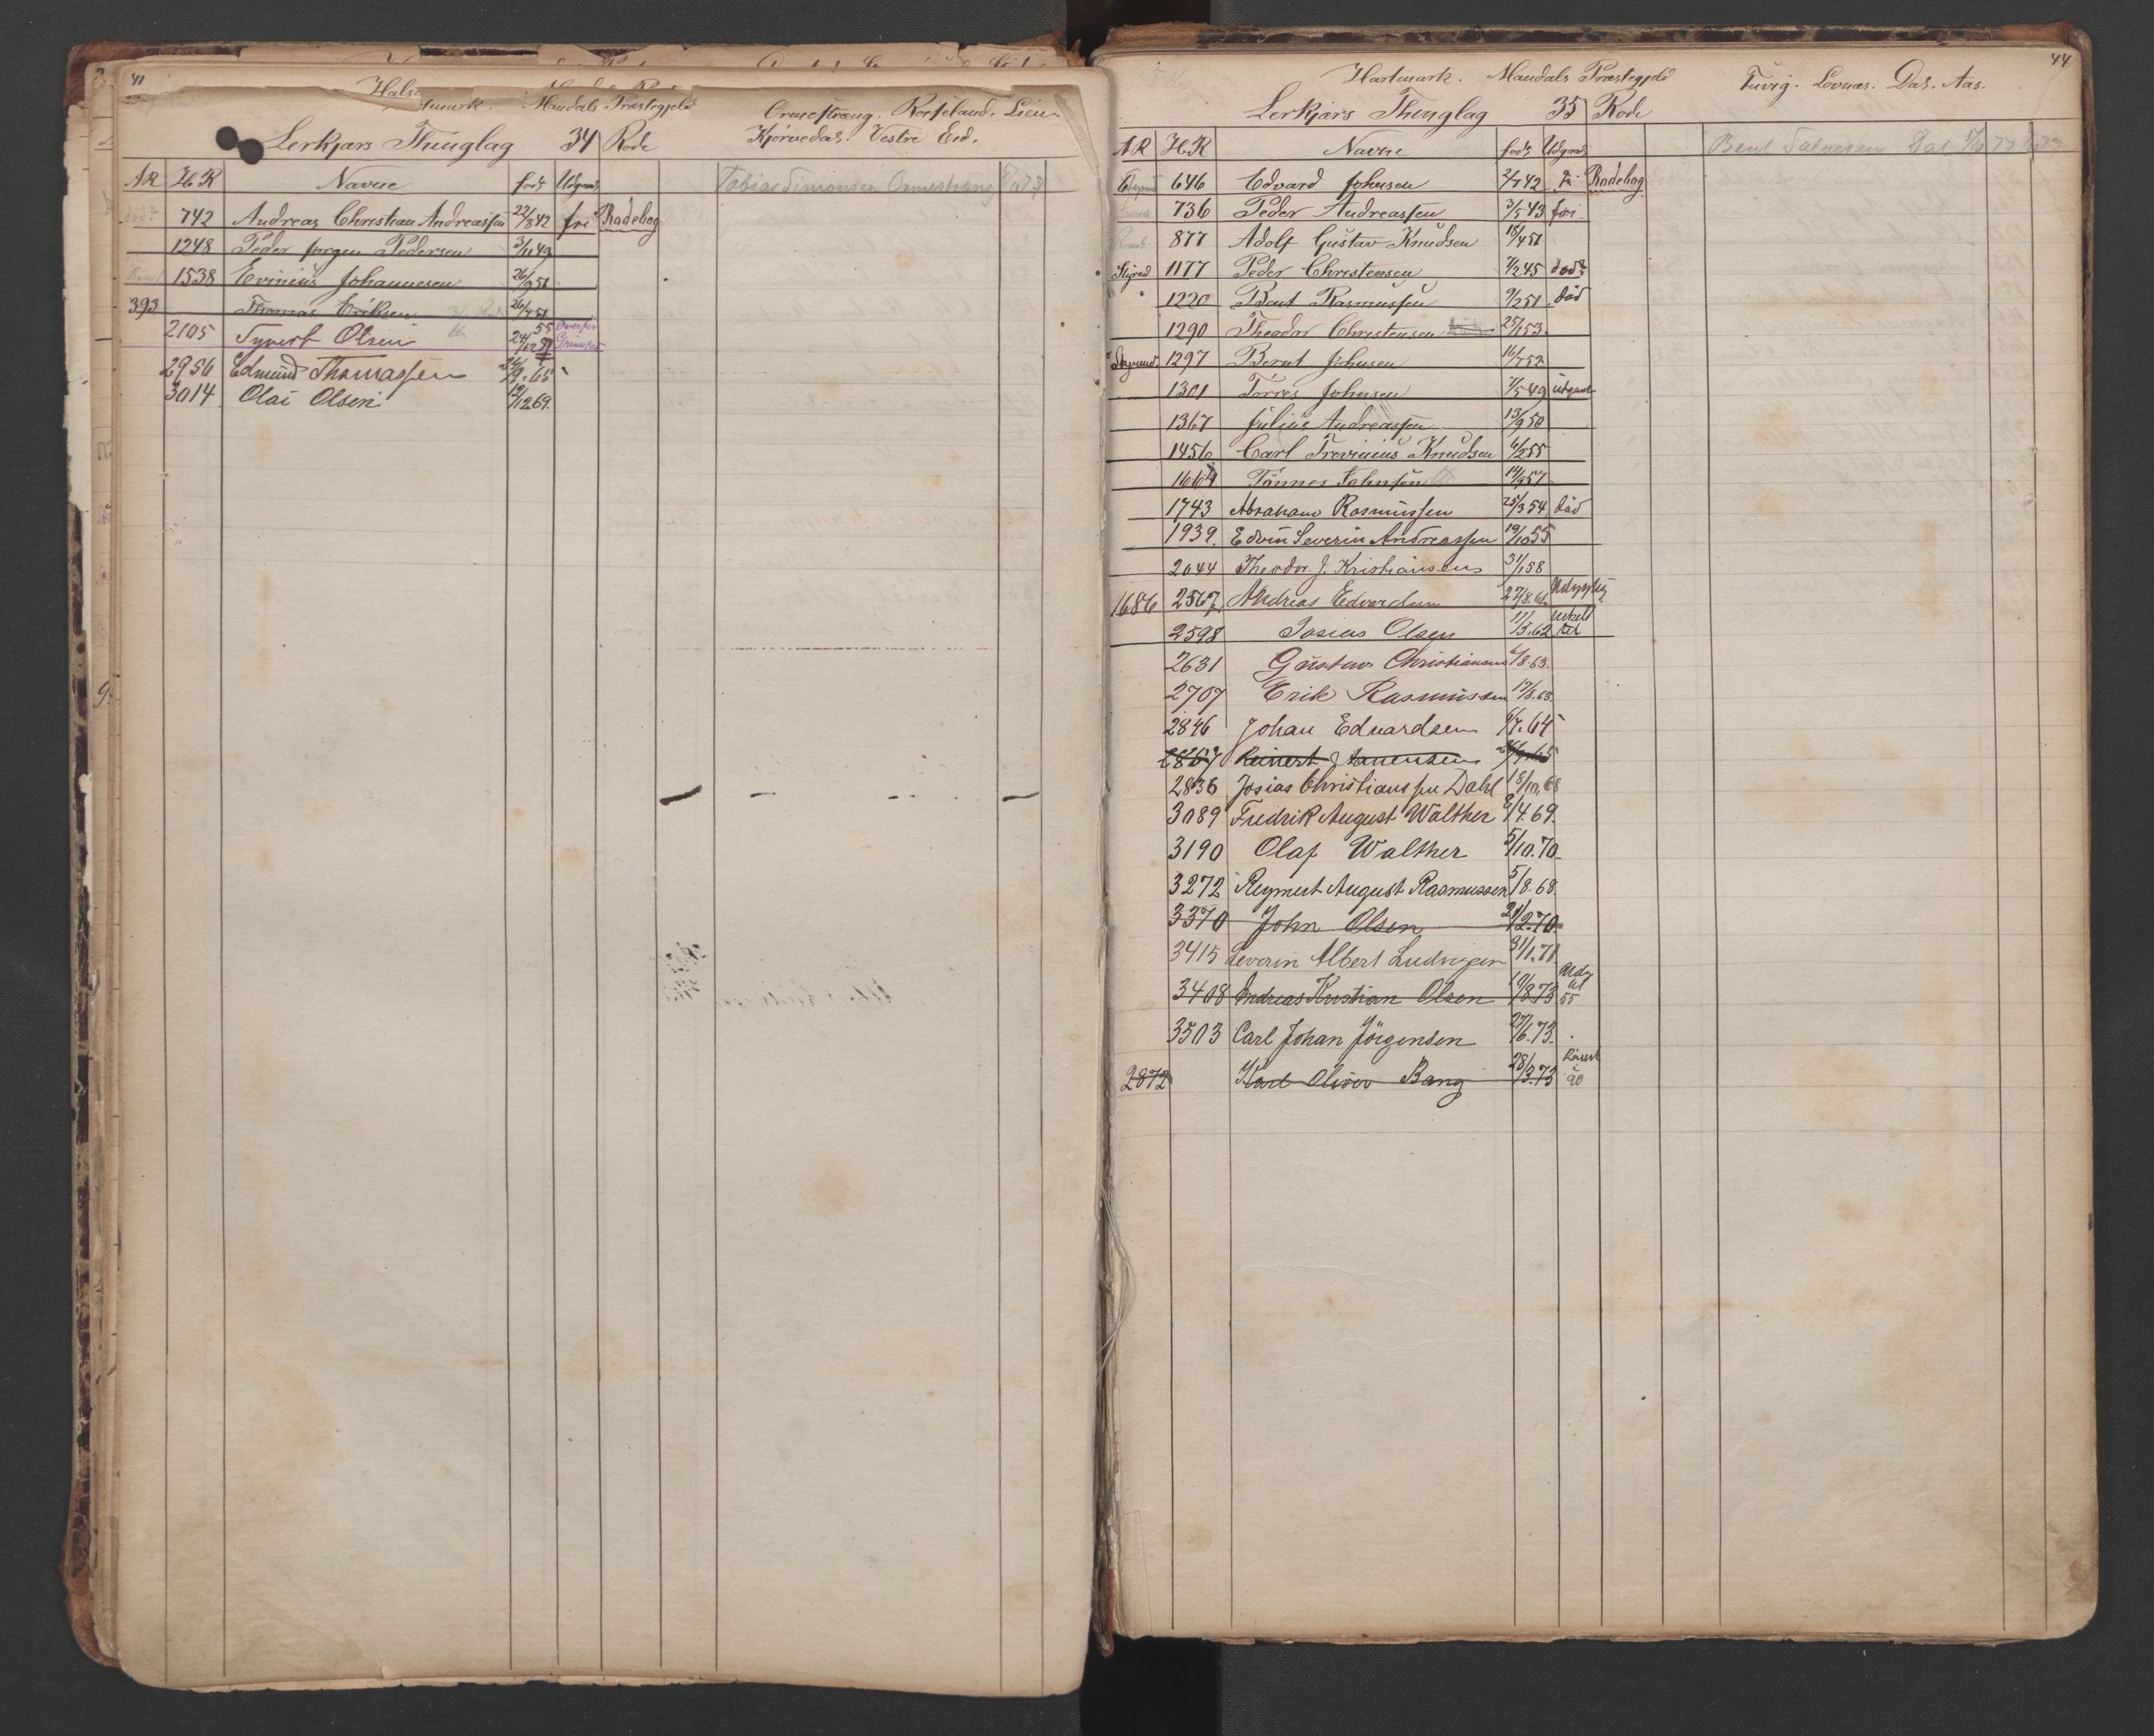 41
Hals
tmark. Mandals Præstegjeld
Ormestrang. Rosseland. Lien.
Lerkjærs Thinglag 34 Rode
Kjørvedal. Vestre Eid.
A R H R Navne født Udgaaet
Tobias Simonsen Ormestrang
742 Andreas Christian Andreassen 22/8 42 fri Rodebog
1248 Peder Jørgen Pedersen 3/11 49
1538 Evinius Johannesen 26/9 51
393 Thomas Eriksen 26/7 51
2105 Syvert Olsen 24/12 55
2956 Edmund Thomassen 26/9. 65
3014 Olai Olsen 12/12 69.
44
Hartmark. Mandals Præstegjeld Tuvig. Lovnæs. Dal. Aas.
Lerkjærs Thinglag 35 Rode
A R H R Navne født Udgaaet
Bent Salvesen Dal
646 Edvard Johnsen 2/7 42 fri Rodebog
736 Peder Andreassen 3/5 43 fri
877 Adolf Gustav Knudsen 18/4 51
1177 Peder Christensen 7/2 45 død
1220 Bent Rasmussen 9/2 51 død
1290 Theodor Christensen 25/1 53.
1297 Bernt Johnsen 16/7 52
1301 Torres Johnsen 7/5 49 udgaaet
1367 Julius Andreassen 13/9 50
1456 Carl Trevinius Knudsen 6/2 55
1664 Tønnes Johnsen 14/9 57
1743 Abraham Rasmussen 25/3 54 død
1939. Edvin Severin Andreassen 19/10 55
2044 Theodor. J. Kristiansens 31/1 58
1686 2567 Andreas Edvardsen 27/8. 61.
2598 Josias Olsen 11/5. 62
2631 Gustav Christiansen 6/8 63.
2707 Erik Rasmussen 17/8. 63.
2846 Johan Edvardsen 6/7. 64
2867 Reinert
2836 Josias Christianssen Dahl 18/10. 68
3089 Fredrik August Walther 8/4. 69.
3190 Olaf Walther 5/10. 70.
3272 Reymert August Rasmussen 5/8. 68.
3370 John Olsen 21/2. 70.
3415 Severin Albert Ludvigsen 31/1. 71
3408 Andreas Kristian Olsen 10/8 73 55
3503 Carl Johan Jörgensen 27/6. 73.
2872 Karl Oliver Bang 28/3. 73 90